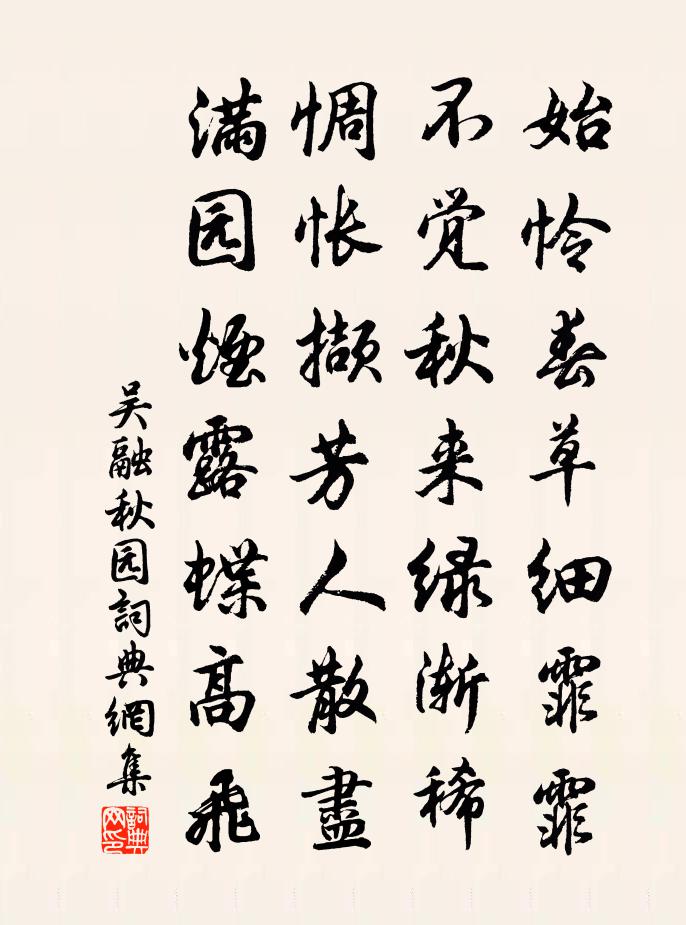 始怜春草细霏霏
不觉秋来绿渐稀
惆怅撷芳人散盡
满园煙露蝶高飛
吴融秋园詞典網集
詞典
网印